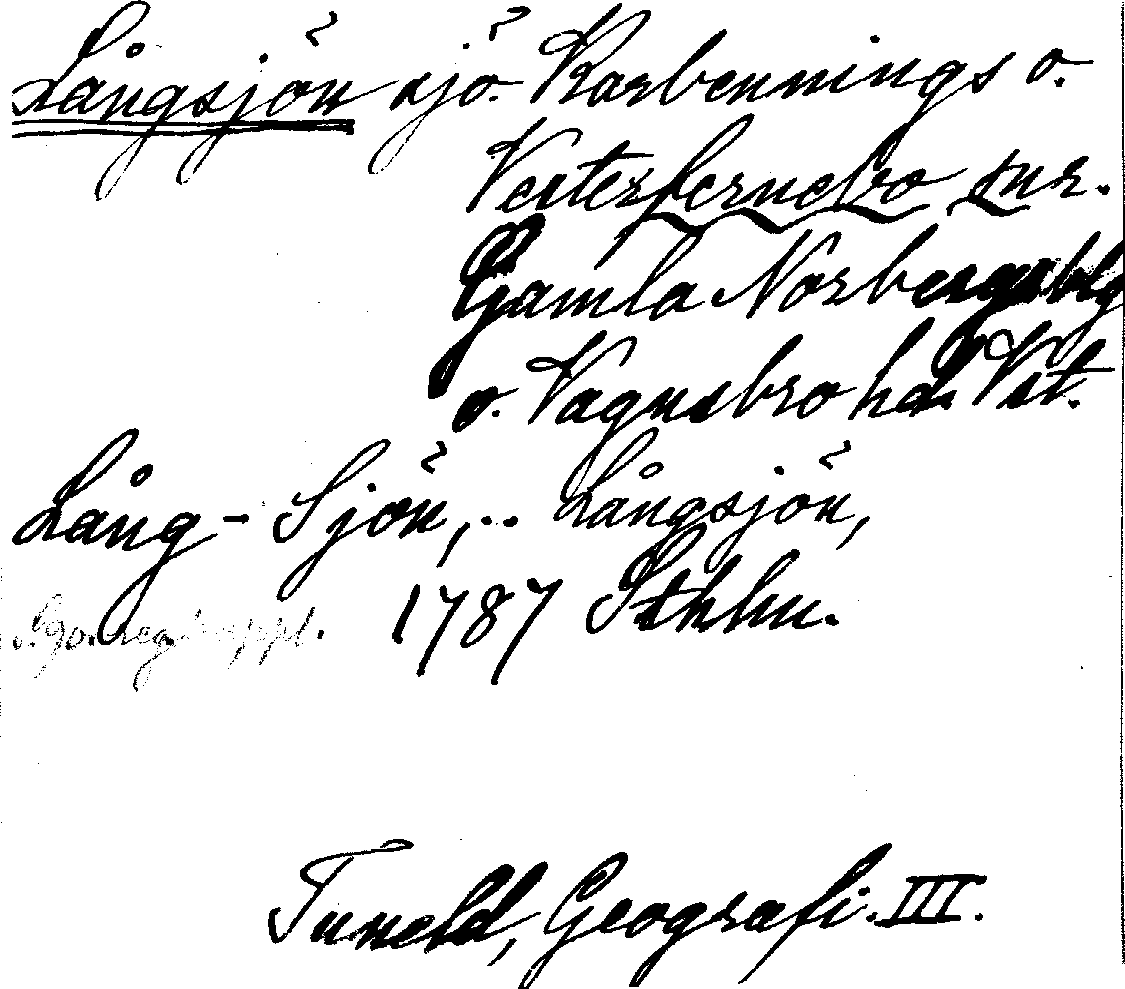 Långsjön sjö. Karbennings o.
Vesterfernebo snr.
Gamla Norbergsblg
o. Vagnsbro hd. Vst.
Lång-Sjön, .. Långsjön,
1787 Sthlm.
Tuneld, Geografi. III.